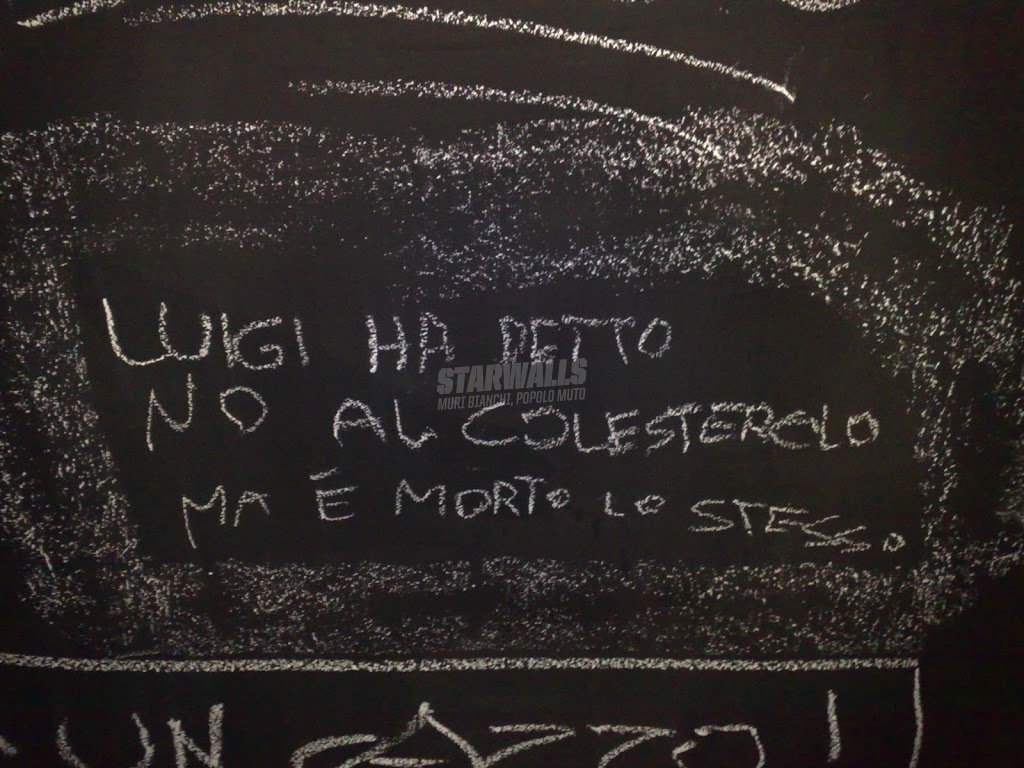 LUIGI HA DETTO
STARWALLS
MURI BIANCHI, POPOLO MUTO
NO AL COLESTEROLO
MA É MORTO LO STESSO
UN CAZZO!